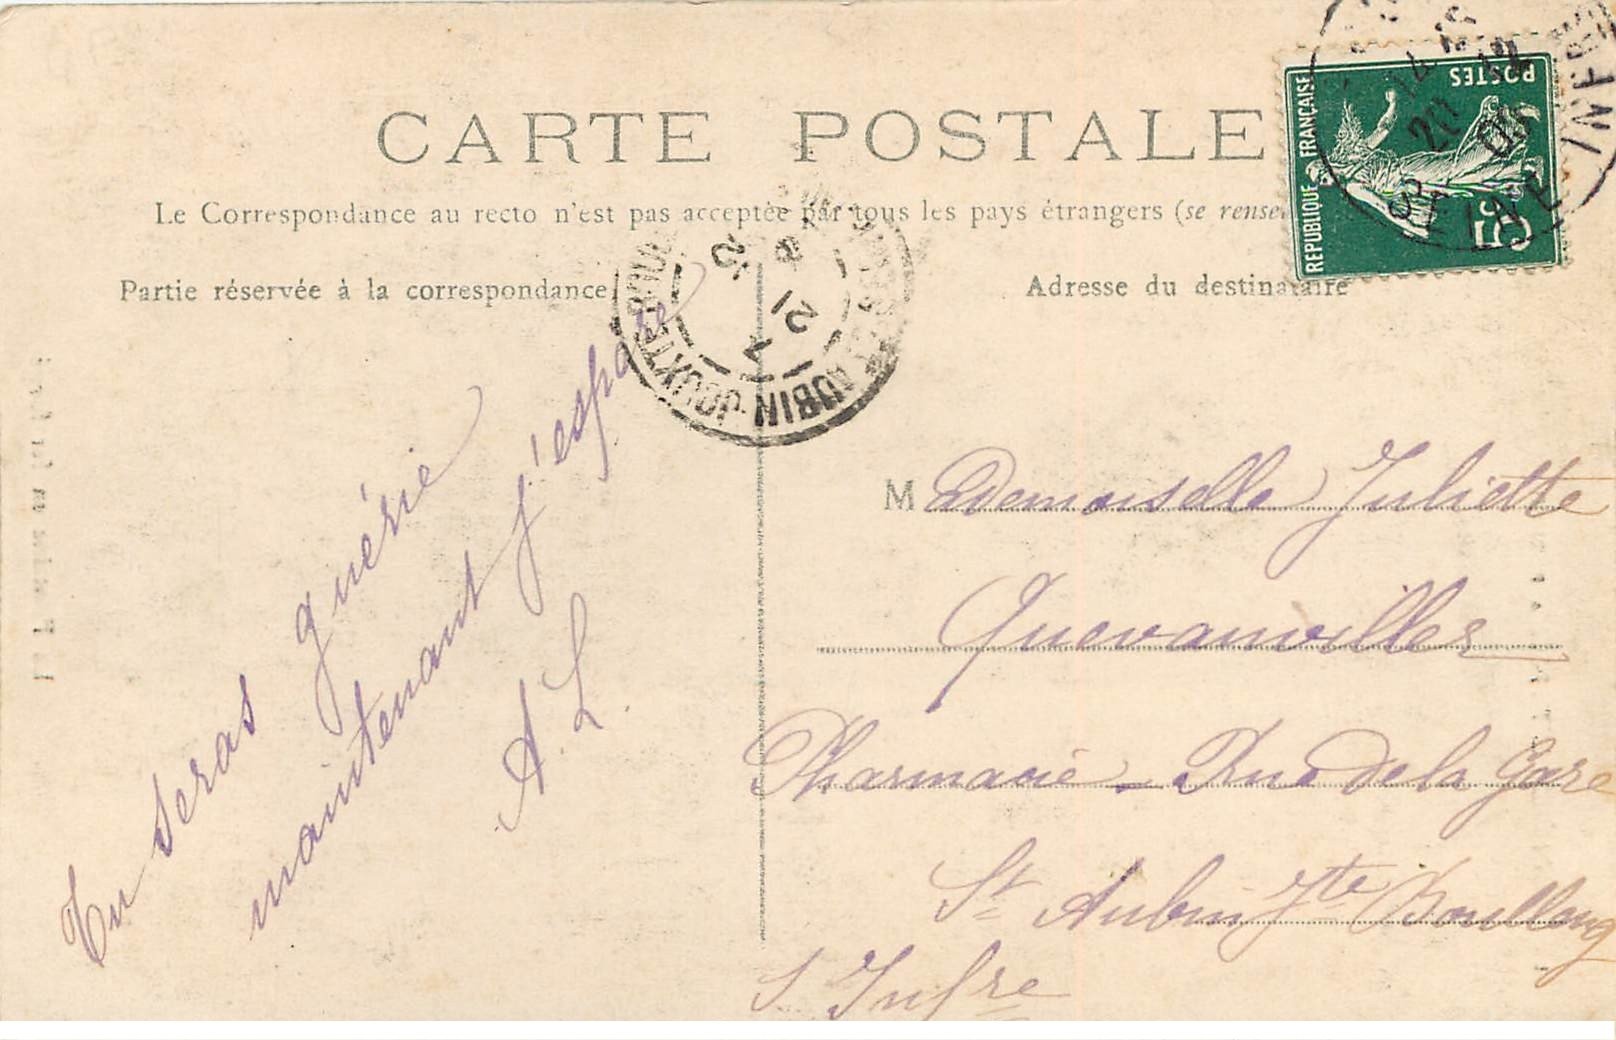 CARTE POSTALE
Le Correspondance au recto n'est pas acceptée par tous les pays étrangers (se rensei
Partie réservée à la correspondance
Adresse du destinataire
REPUBLIQUE FRANÇAISE
POSTES
5c
AUBIN-JOUXTE-BOU
21
Tu seras guérie
maintenant j'espère
A. L.
Mademoiselle Juliette
Quevauvillez
Pharmacie - Rue de la Gare
St Aubin Jte Boulleng
S Infre